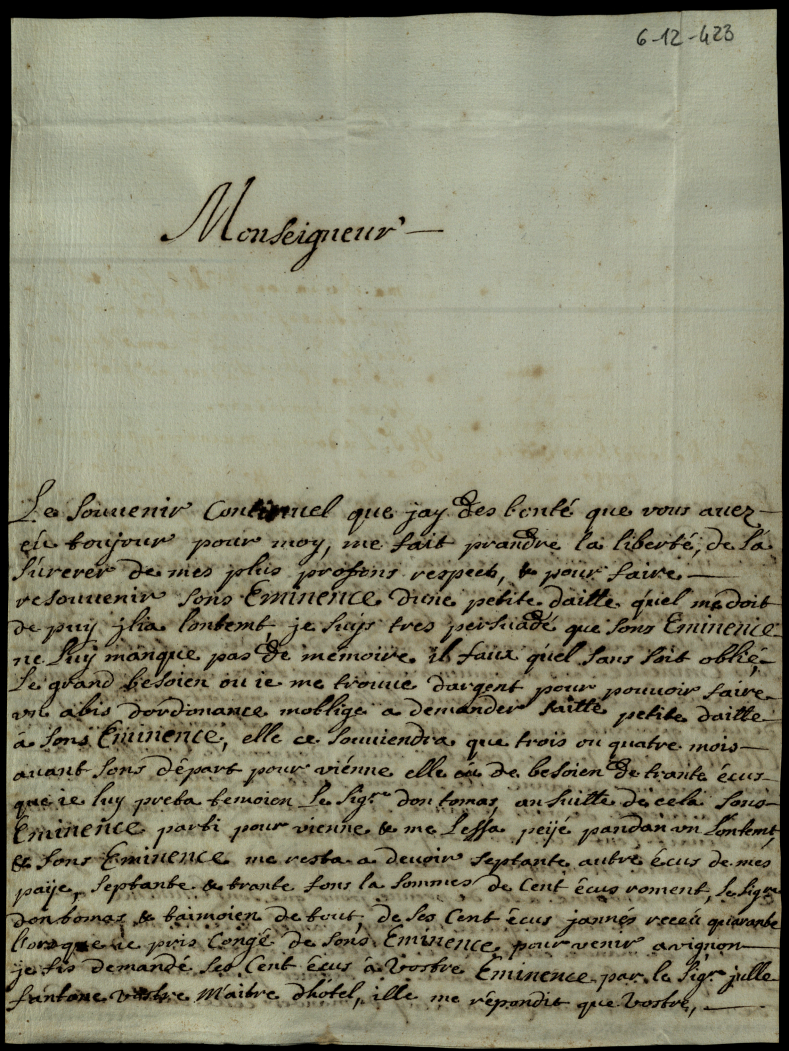 6-12-423
Monseigneur
Le souvenir continuel que jay des bonté que vous avez
eü toujour pour moy, me fait prandre la liberté, de la
sürerer de mes plus profons respect, & pour faire
resouvenir sons Eminence dune petite daitte quel me doit
de puy jlia lontemt je suys tres persuadé que sons Eminence
ne luy manque pas de memoire il faux quel sans soit oblié,
Le grand besoien ou ie me trouve dargent pour pouvoir faire
un abis dordonance moblige a demander saitte petite daitte
à sons Eminence, elle ce souviendra que trois ou quatre mois
avant sons départ pour viénne elle eü de besoien de trante écus
que ie luy preta temoien Le Sigr. don tomas, ansuitte de cela sons
Eminence parti pour vienne & me Lessa peijé pandan un lontemt,
& sons Eminence me resta a devoir septante autre écus de mes
paije, septante & trante sons la sommes de cent écus roment, le Sigre
don tomas & taimoien de tout, de ses cent écus jannés receü quarante
llorsque ie pris congé de sons Eminence pour venir avignon
je fis demandé ses cent écus à vostre Eminence par le Sigr. julle
fantone vostre Maitre dhôtel, ille me répondit que vostre,